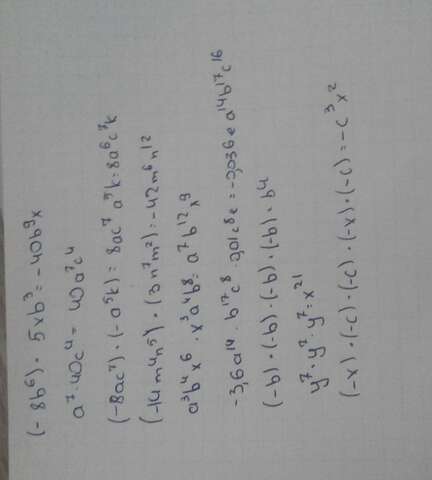 (-8b⁶) · 5xb³ = -40b⁹x
a⁷ · 40c⁴ = 40a⁷c⁴
(-8ac⁷) · (-a⁵k) = 8ac⁷ a⁵k = 8a⁶c⁷k
(-14m⁴n⁵) · (3n⁷m²) = -42m⁶n¹²
a³b⁴x⁶ · x³a⁴b⁸ = a⁷b¹²x⁹
-3,6a¹⁴ · b¹⁷c⁸ · 0,01c⁸e = -0,036e a¹⁴b¹⁷c¹⁶
(-b) · (-b) · (-b) · (-b) · b⁴
y⁷ · y⁷ · y⁷ · x²¹
(-x) · (-c) · (-c) · (-x) · (-c) = -c³x²